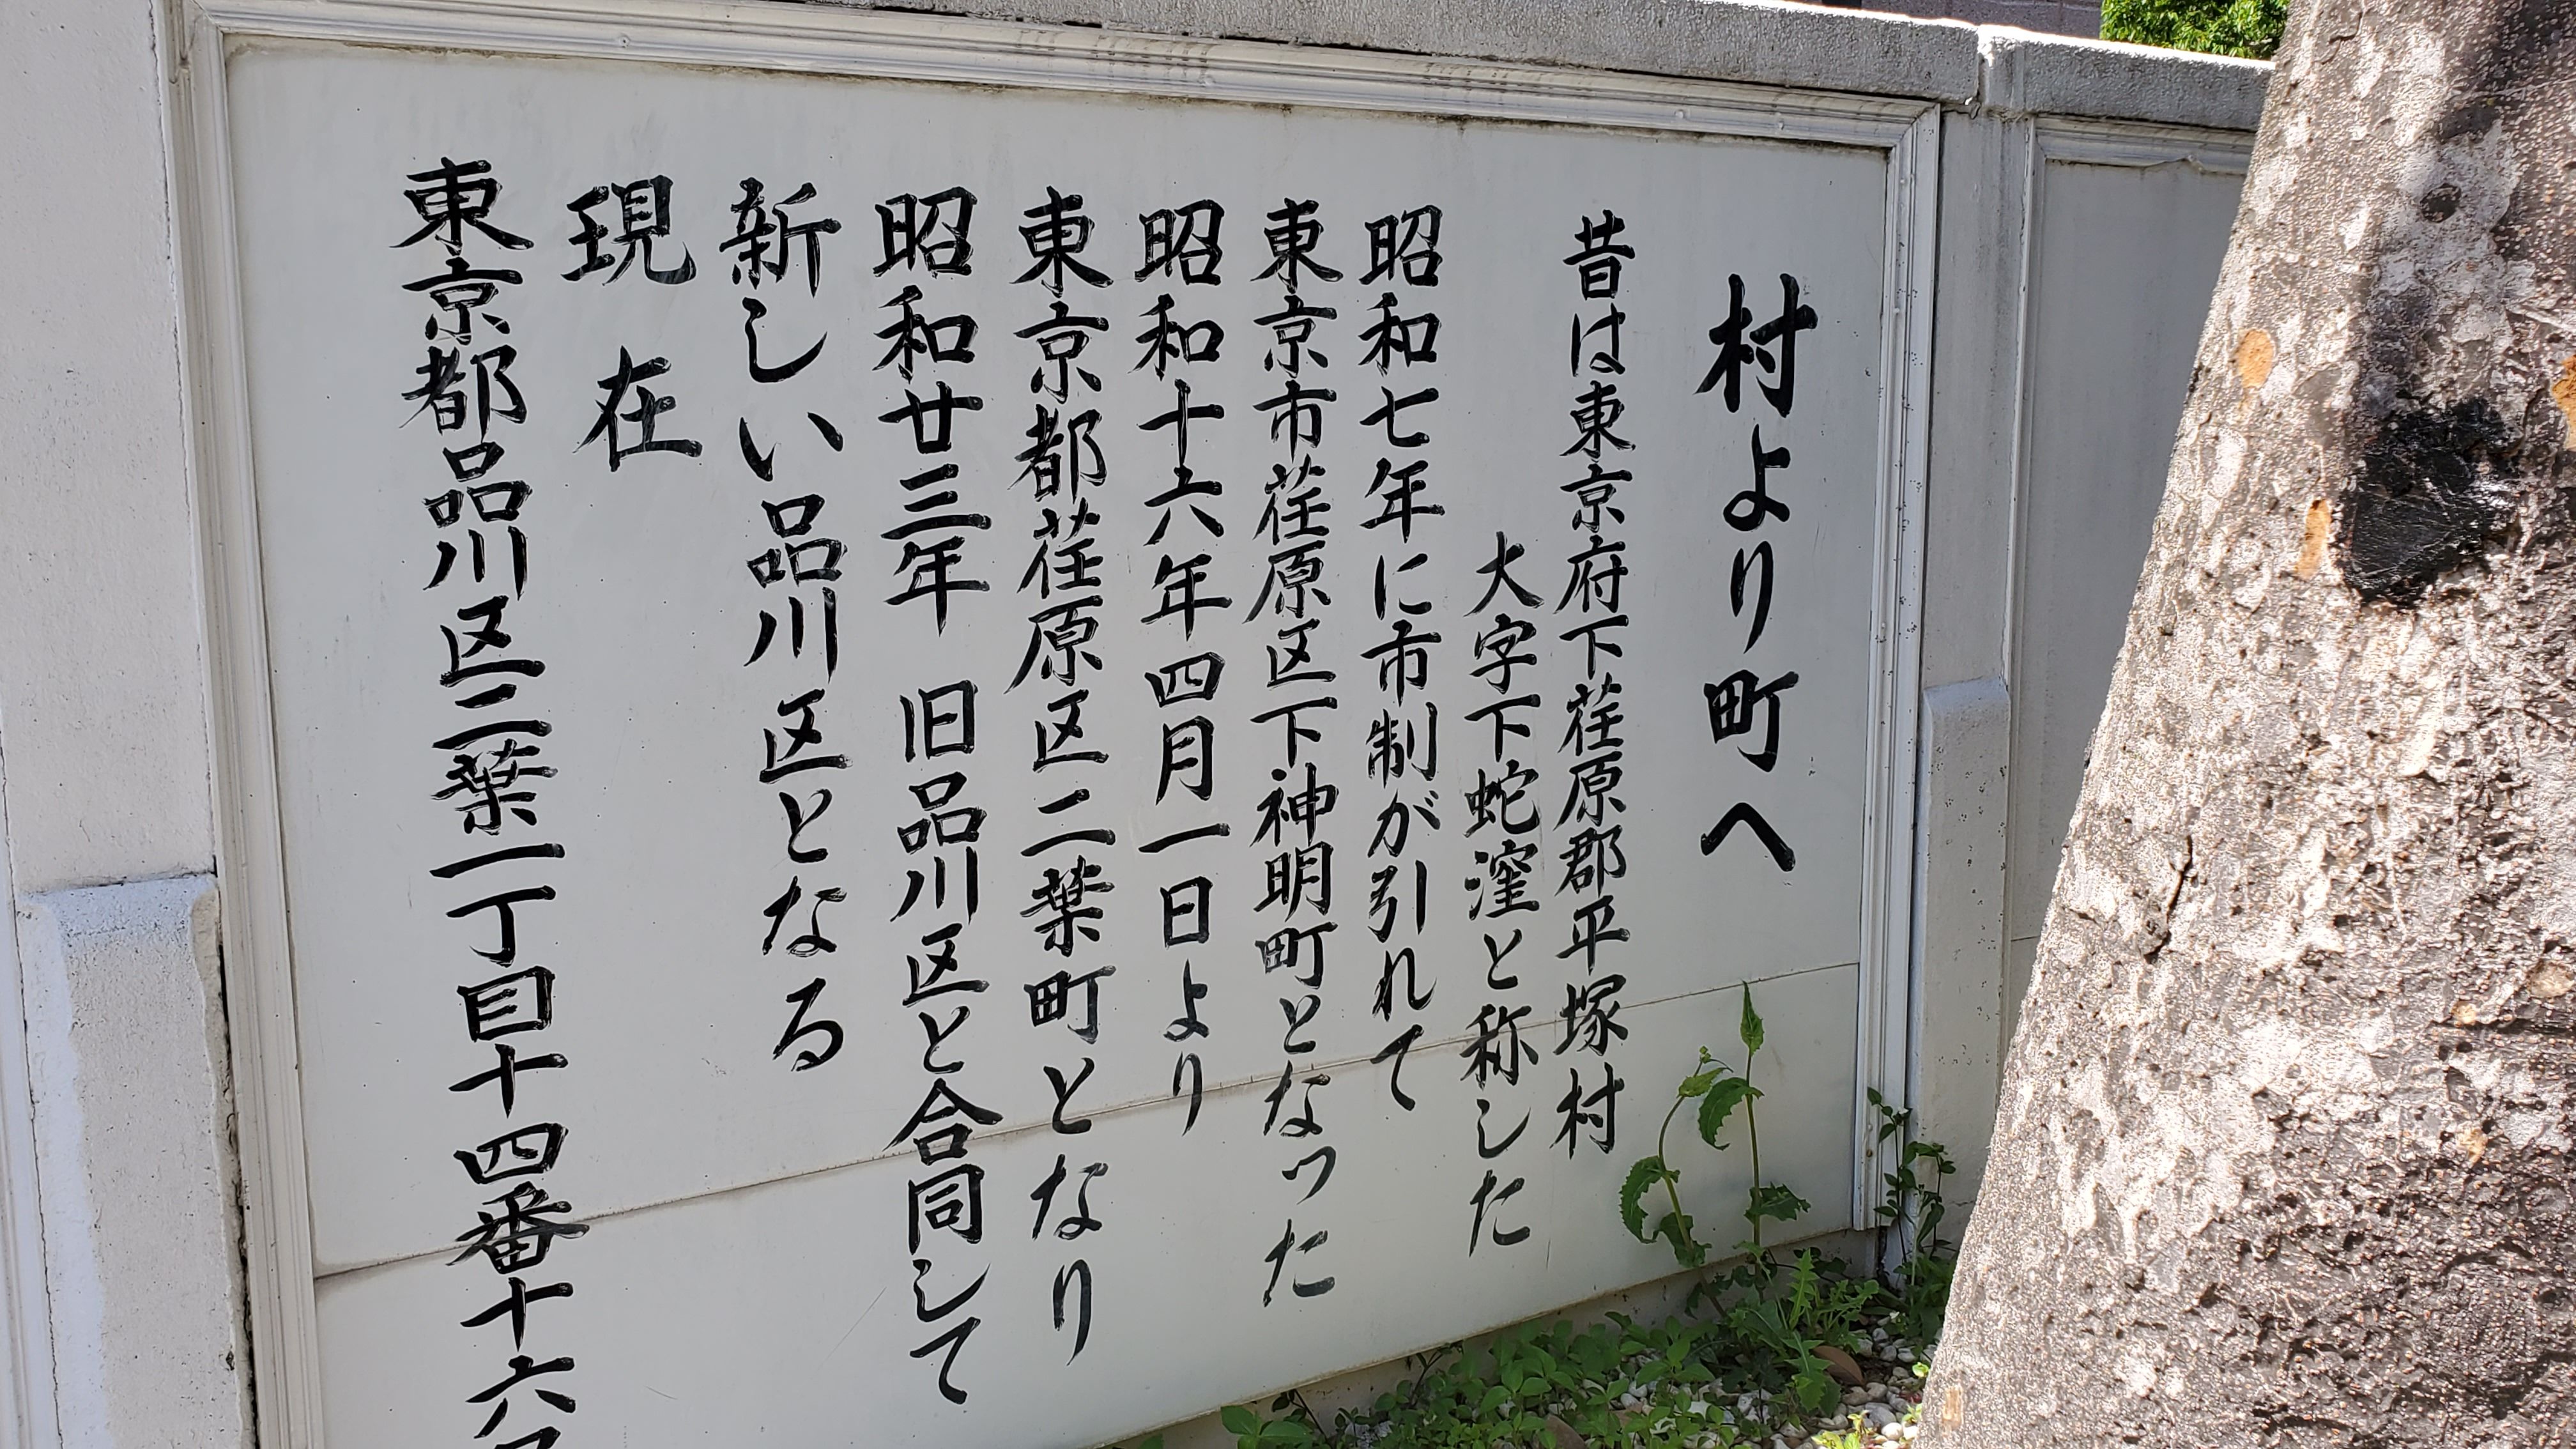 村より町へ
昔は東京府下荏原郡平塚村
大字下蛇窪と称した
昭和七年に市制が引れて
東京市荏原区下神明町となった
昭和十六年四月一日より
東京都荏原区二葉町となり
昭和廿三年 旧品川区と合同して
新しい品川区となる
現在
東京都品川区二葉一丁目十四番十六